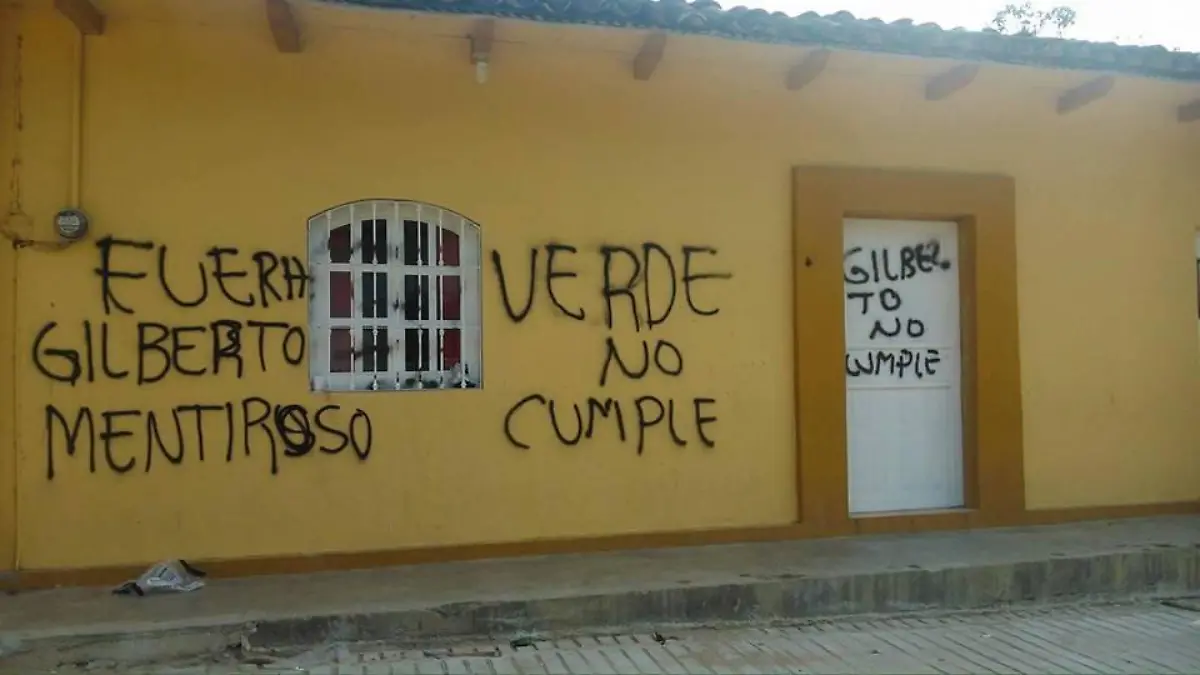 FUERA
GILBERTO
MENTIROSO
VERDE
NO
CUMPLE
GILBER
TO
NO
CUMPLE